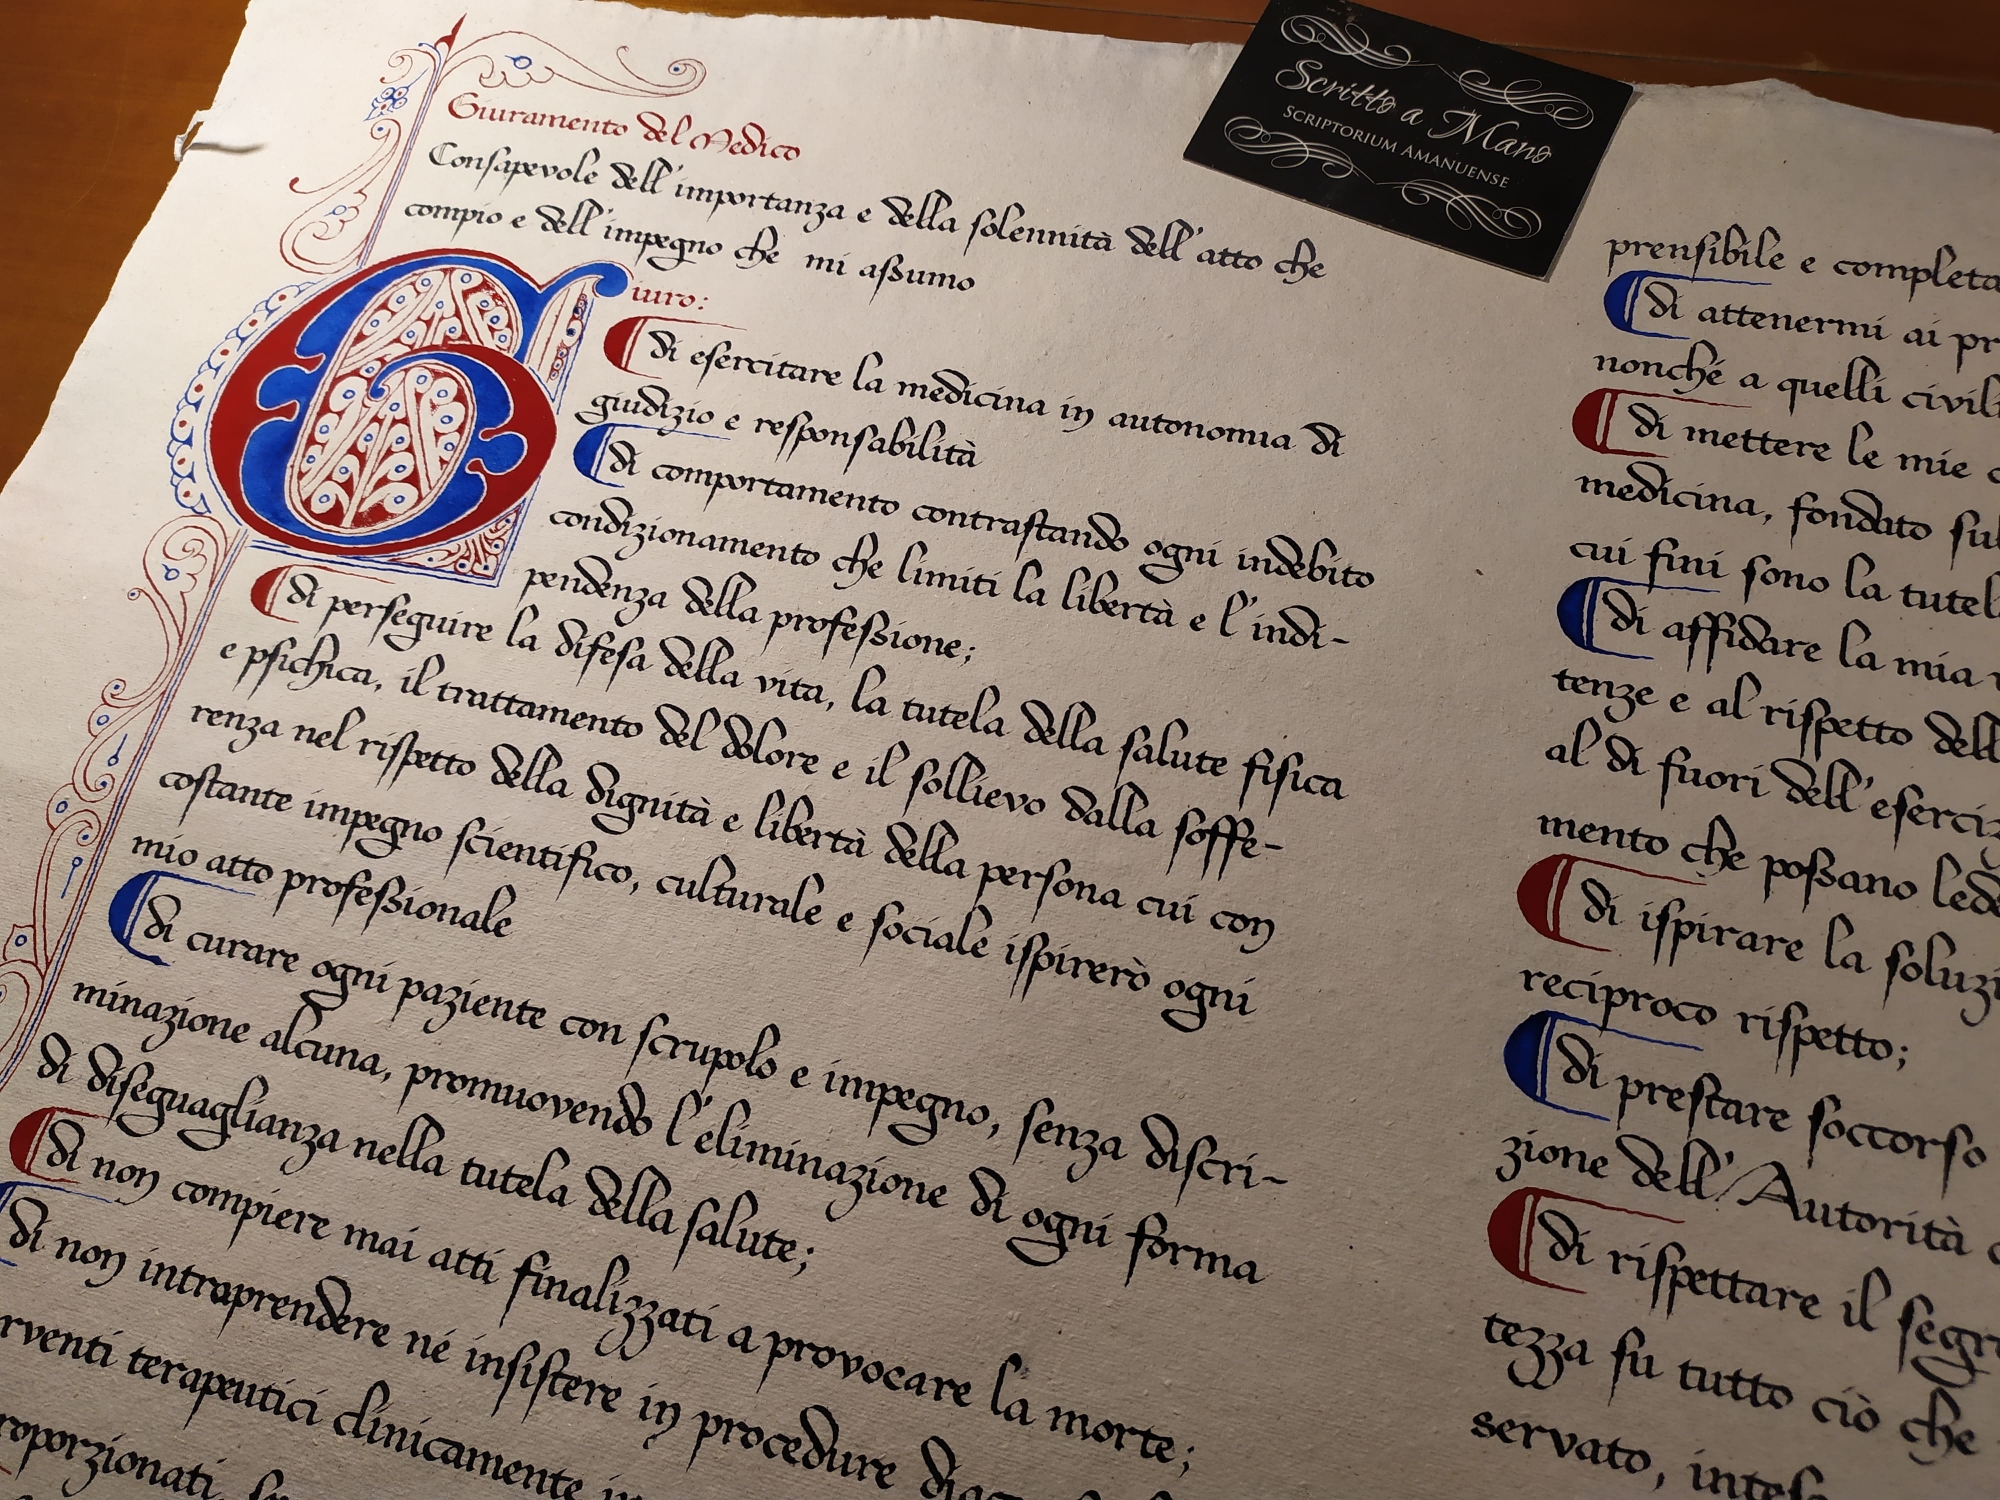 Giuramento del Medico
Consapevole dell'importanza e della solennità dell'atto che
compio e dell'impegno che mi assumo
Giuro:
di esercitare la medicina in autonomia di
giudizio e responsabilità
di comportamento contrastando ogni indebito
condizionamento che limiti la libertà e l'indi-
pendenza della professione;
di perseguire la difesa della vita, la tutela della salute fisica
e psichica, il trattamento del dolore e il sollievo dalla soffe-
renza nel rispetto della dignità e libertà della persona cui con
costante impegno scientifico, culturale e sociale ispirerò ogni
mio atto professionale
di curare ogni paziente con scrupolo e impegno, senza discri-
minazione alcuna, promuovendo l'eliminazione di ogni forma
di diseguaglianza nella tutela della salute;
di non compiere mai atti finalizzati a provocare la morte;
di non intraprendere né insistere in procedure
rventi terapeutici clinicamente
roporzionati,
Scritto a Mano
SCRIPTORIUM AMANUENSE
prensibile e completa
di attenermi ai pr
nonché a quelli civili
di mettere le mie c
medicina, fondato sul
cui fini sono la tutel
di affidare la mia
tenze e al rispetto dell
al di fuori dell'eserciz
mento che possano lede
di ispirare la soluzi
reciproco rispetto;
di prestare soccorso
zione dell'Autorità
di rispettare il segr
tezza su tutto ciò che
servato, intes